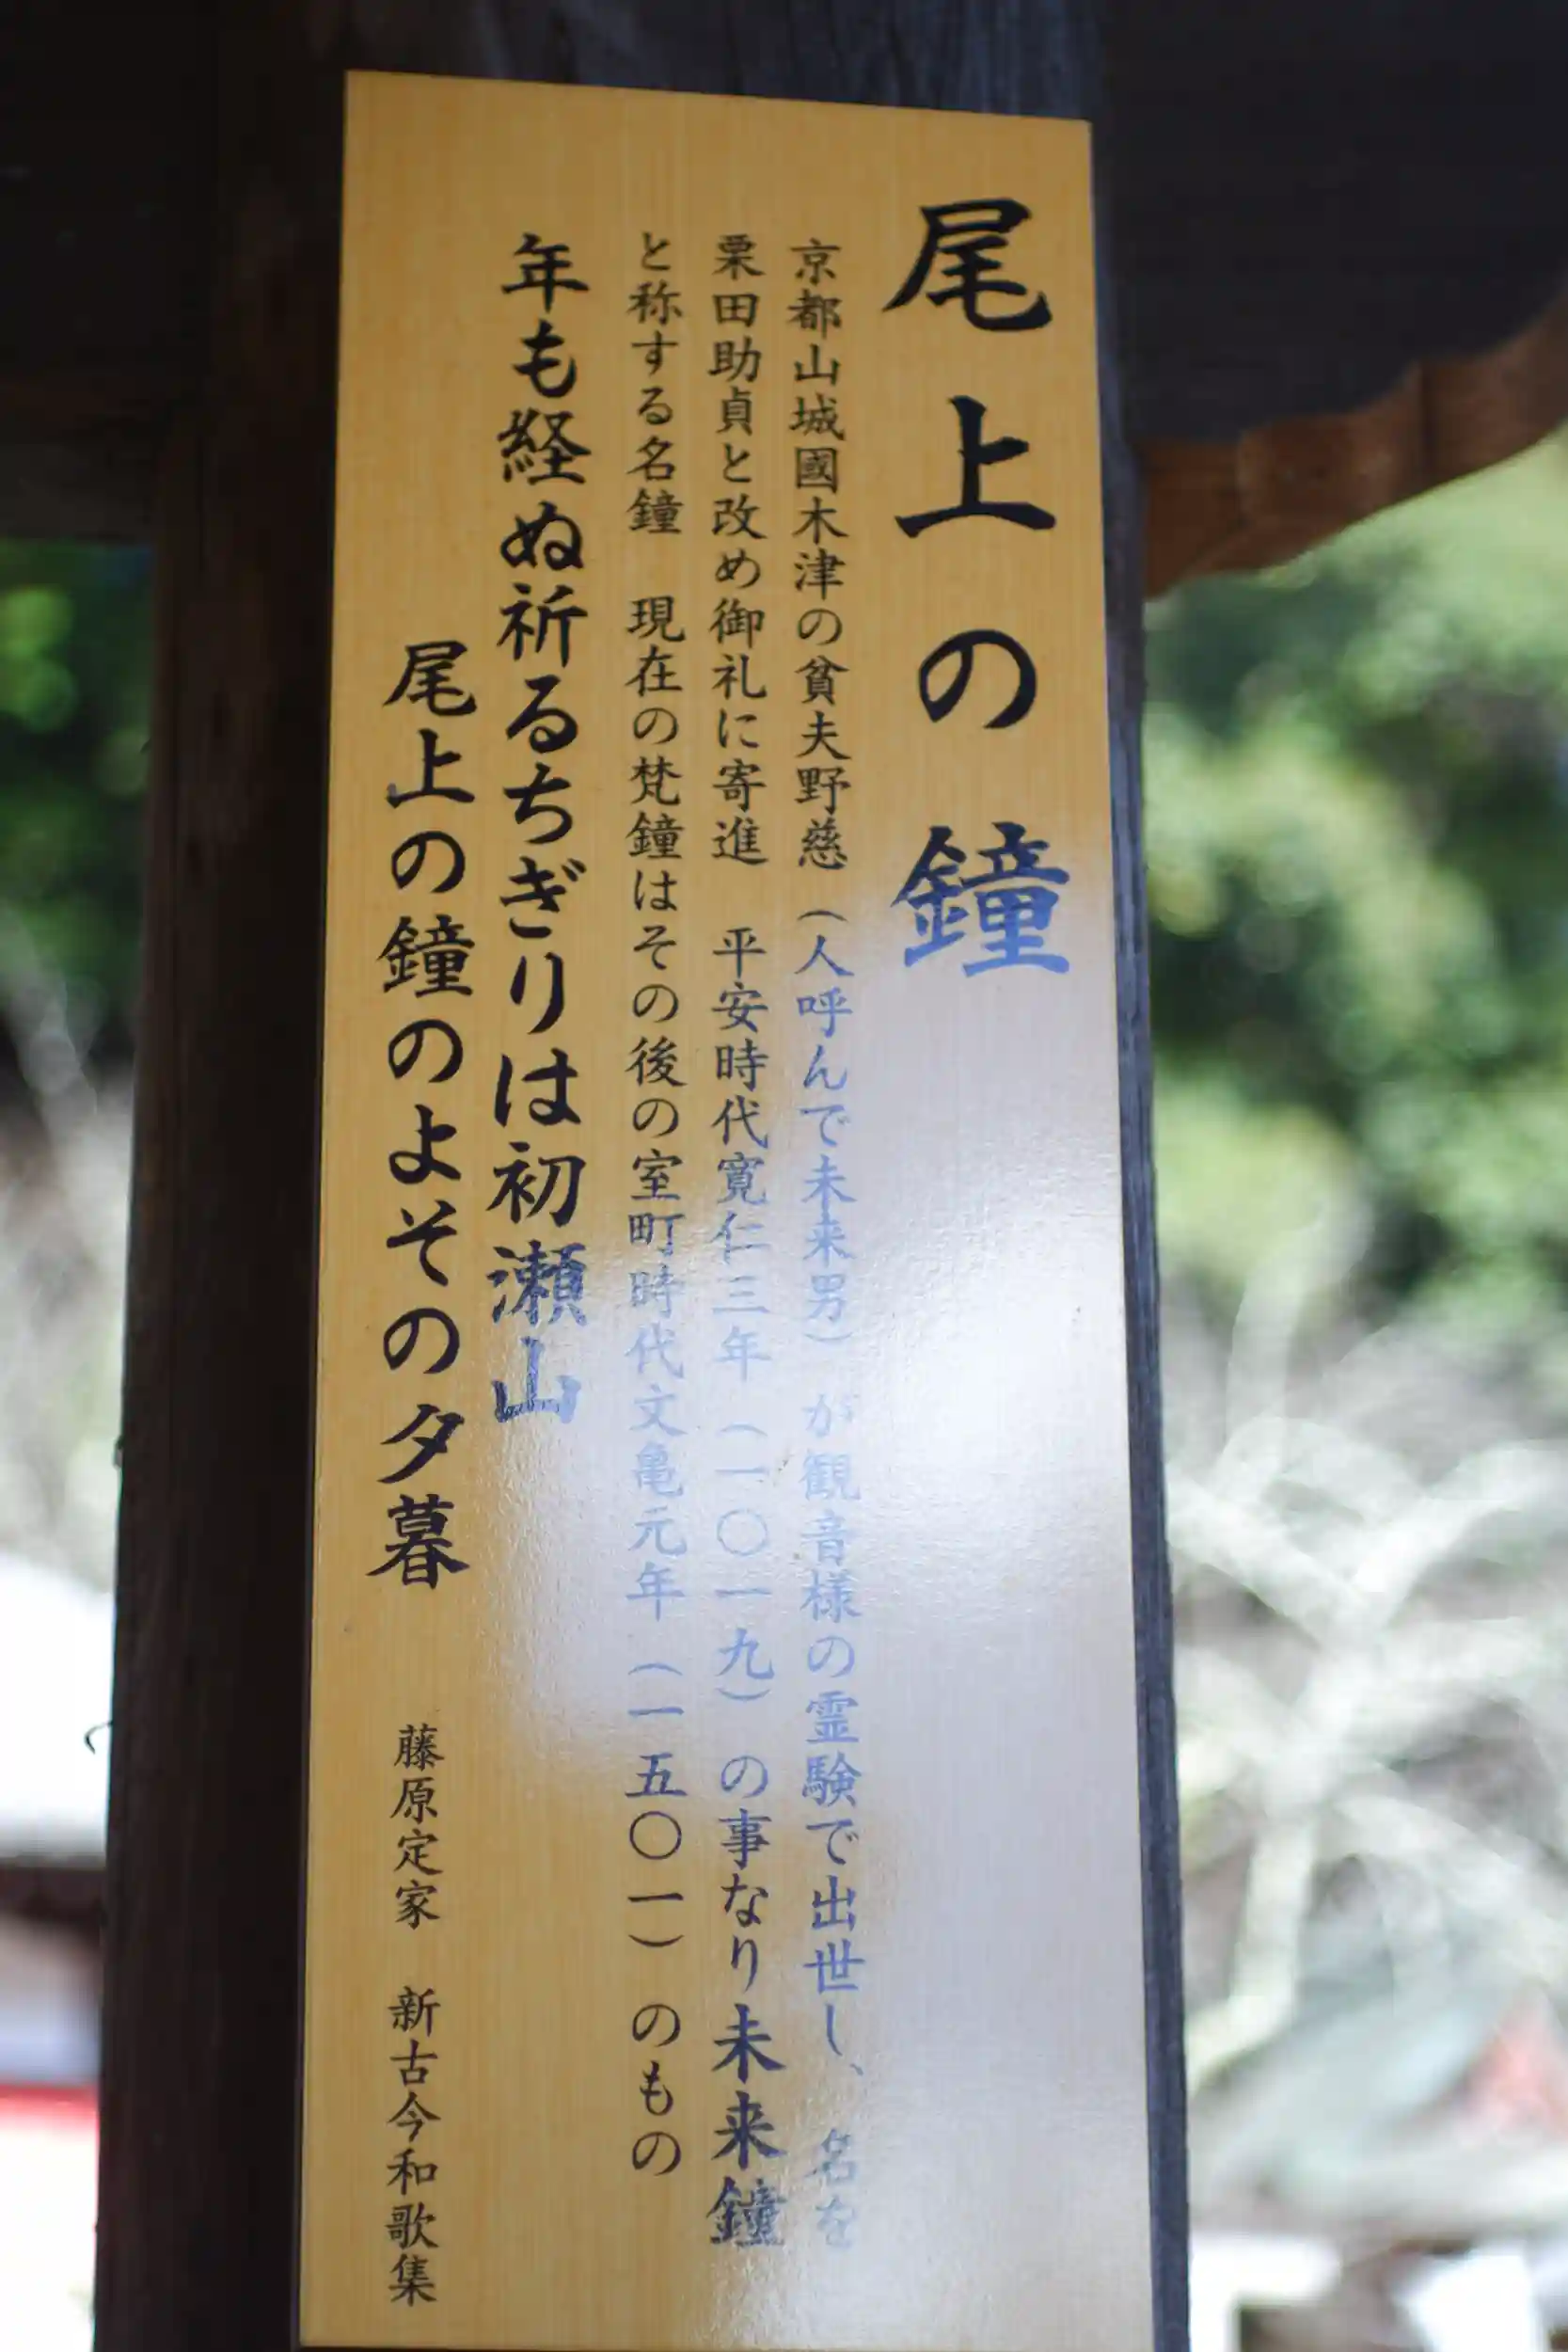 尾上の鐘
京都山城國木津の貧夫野慈（人呼んで未来男）が観音様の霊験で出世し、名を
栗田助貞と改め御礼に寄進　平安時代寛仁三年（一〇一九）の事なり未来鐘
と称する名鐘　現在の梵鐘はその後の室町時代文亀元年（一五〇一）のもの
年も経ぬ祈るちぎりは初瀬山
尾上の鐘のよその夕暮　藤原定家　新古今和歌集